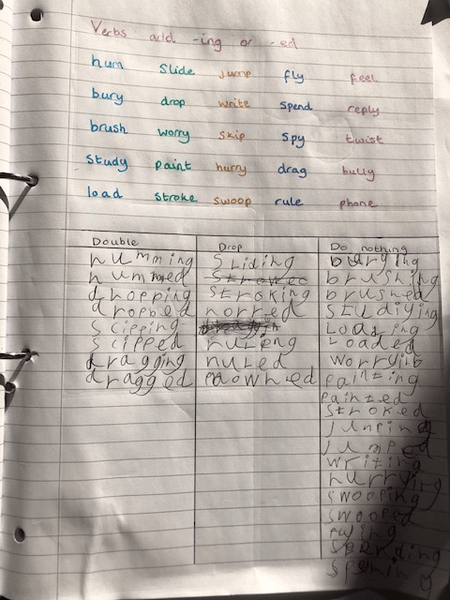 Verbs add -ing or -ed
hum slide jump fly feel
bury drop write spend reply
brush worry skip spy twist
study paint hurry drag bully
load stroke swoop rule phone
Double Drop Do nothing
humming Sliding burying
hummed Stroked brushing
dropping stroking brushed
dropped horred studying
scipping Loading
scipped ruleng Loaded
dragging ruled worrying
dragged painting
painted
stroked
jumping
jumped
writing
hurrying
swooping
swooped
spending